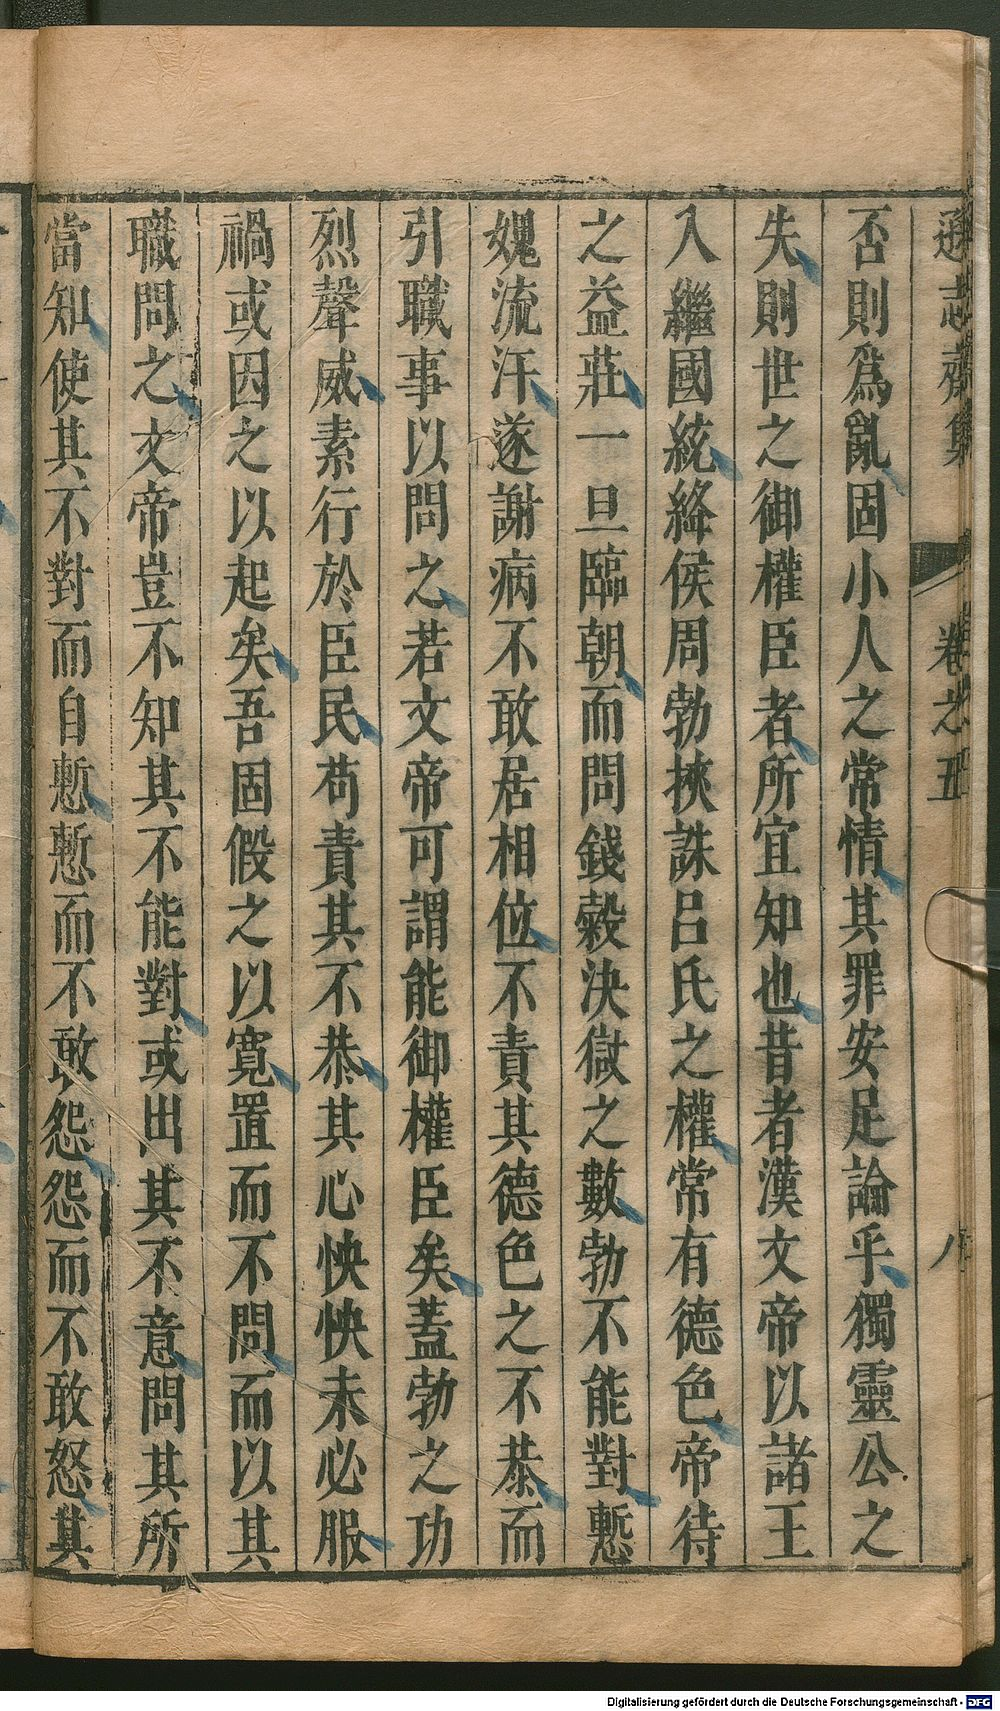 遜志齋集 卷之五 八
否則爲亂固小人之常情其罪安足論乎獨靈公之
失則世之御權臣者所宜知也昔者漢文帝以諸王
入繼國統絳侯周勃挾誅呂氏之權常有德色帝待
之益莊一旦臨朝而問問錢穀決獄之數勃不能對慙
媿流汗遂謝病不敢居相位不責其德色之不恭而
引職事以問之若文帝可謂能御權臣矣蓋勃之功
烈聲威素行於臣民苟責其不恭其心怏怏未必服
禍或因之以起矣吾固假之以寬置而不問而以其
職問之文帝豈不知其不能對或出其不意問其所
當知使其不對而自慙慙而不敢怨怨而不敢怒其
Digitalisierung gefördert durch die Deutsche Forschungsgemeinschaft - DFG